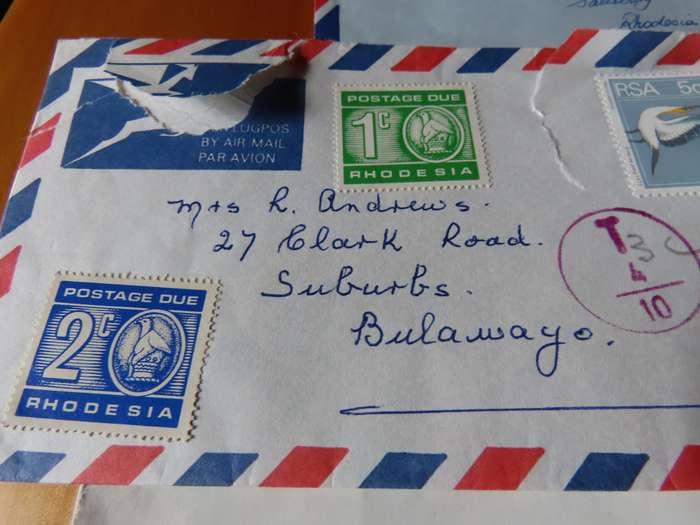 Salisbury
Rhodesia
LUGPOS
BY AIR MAIL
PAR AVION
POSTAGE DUE
1c
RHODESIA
RSA 5c
Mrs R. Andrews.
27 Clark Road.
Suburbs.
Bulawayo.
T 3c
4
10
POSTAGE DUE
2c
RHODESIA